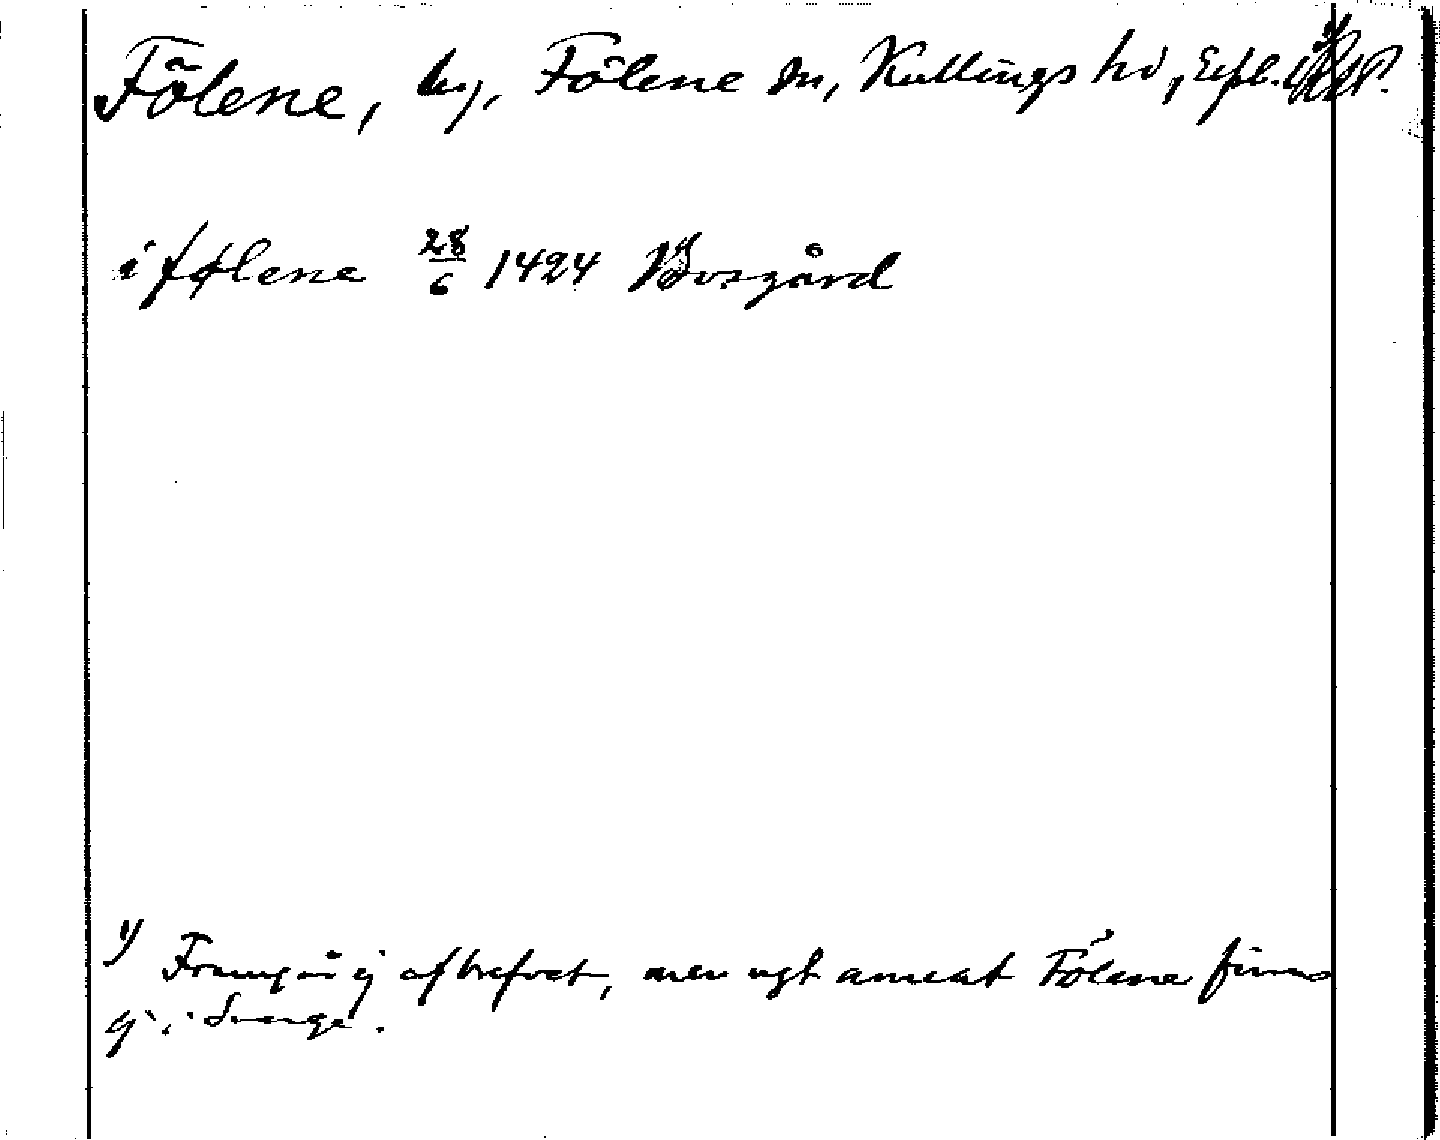 Fölene, by, Fölene sn, Kullings hd, Efsl. 1)
i følene 28/6 1424 Bosgård
1) Framgår ej af brefvet, men ngt annat Fölene finns
ej i Sverge.